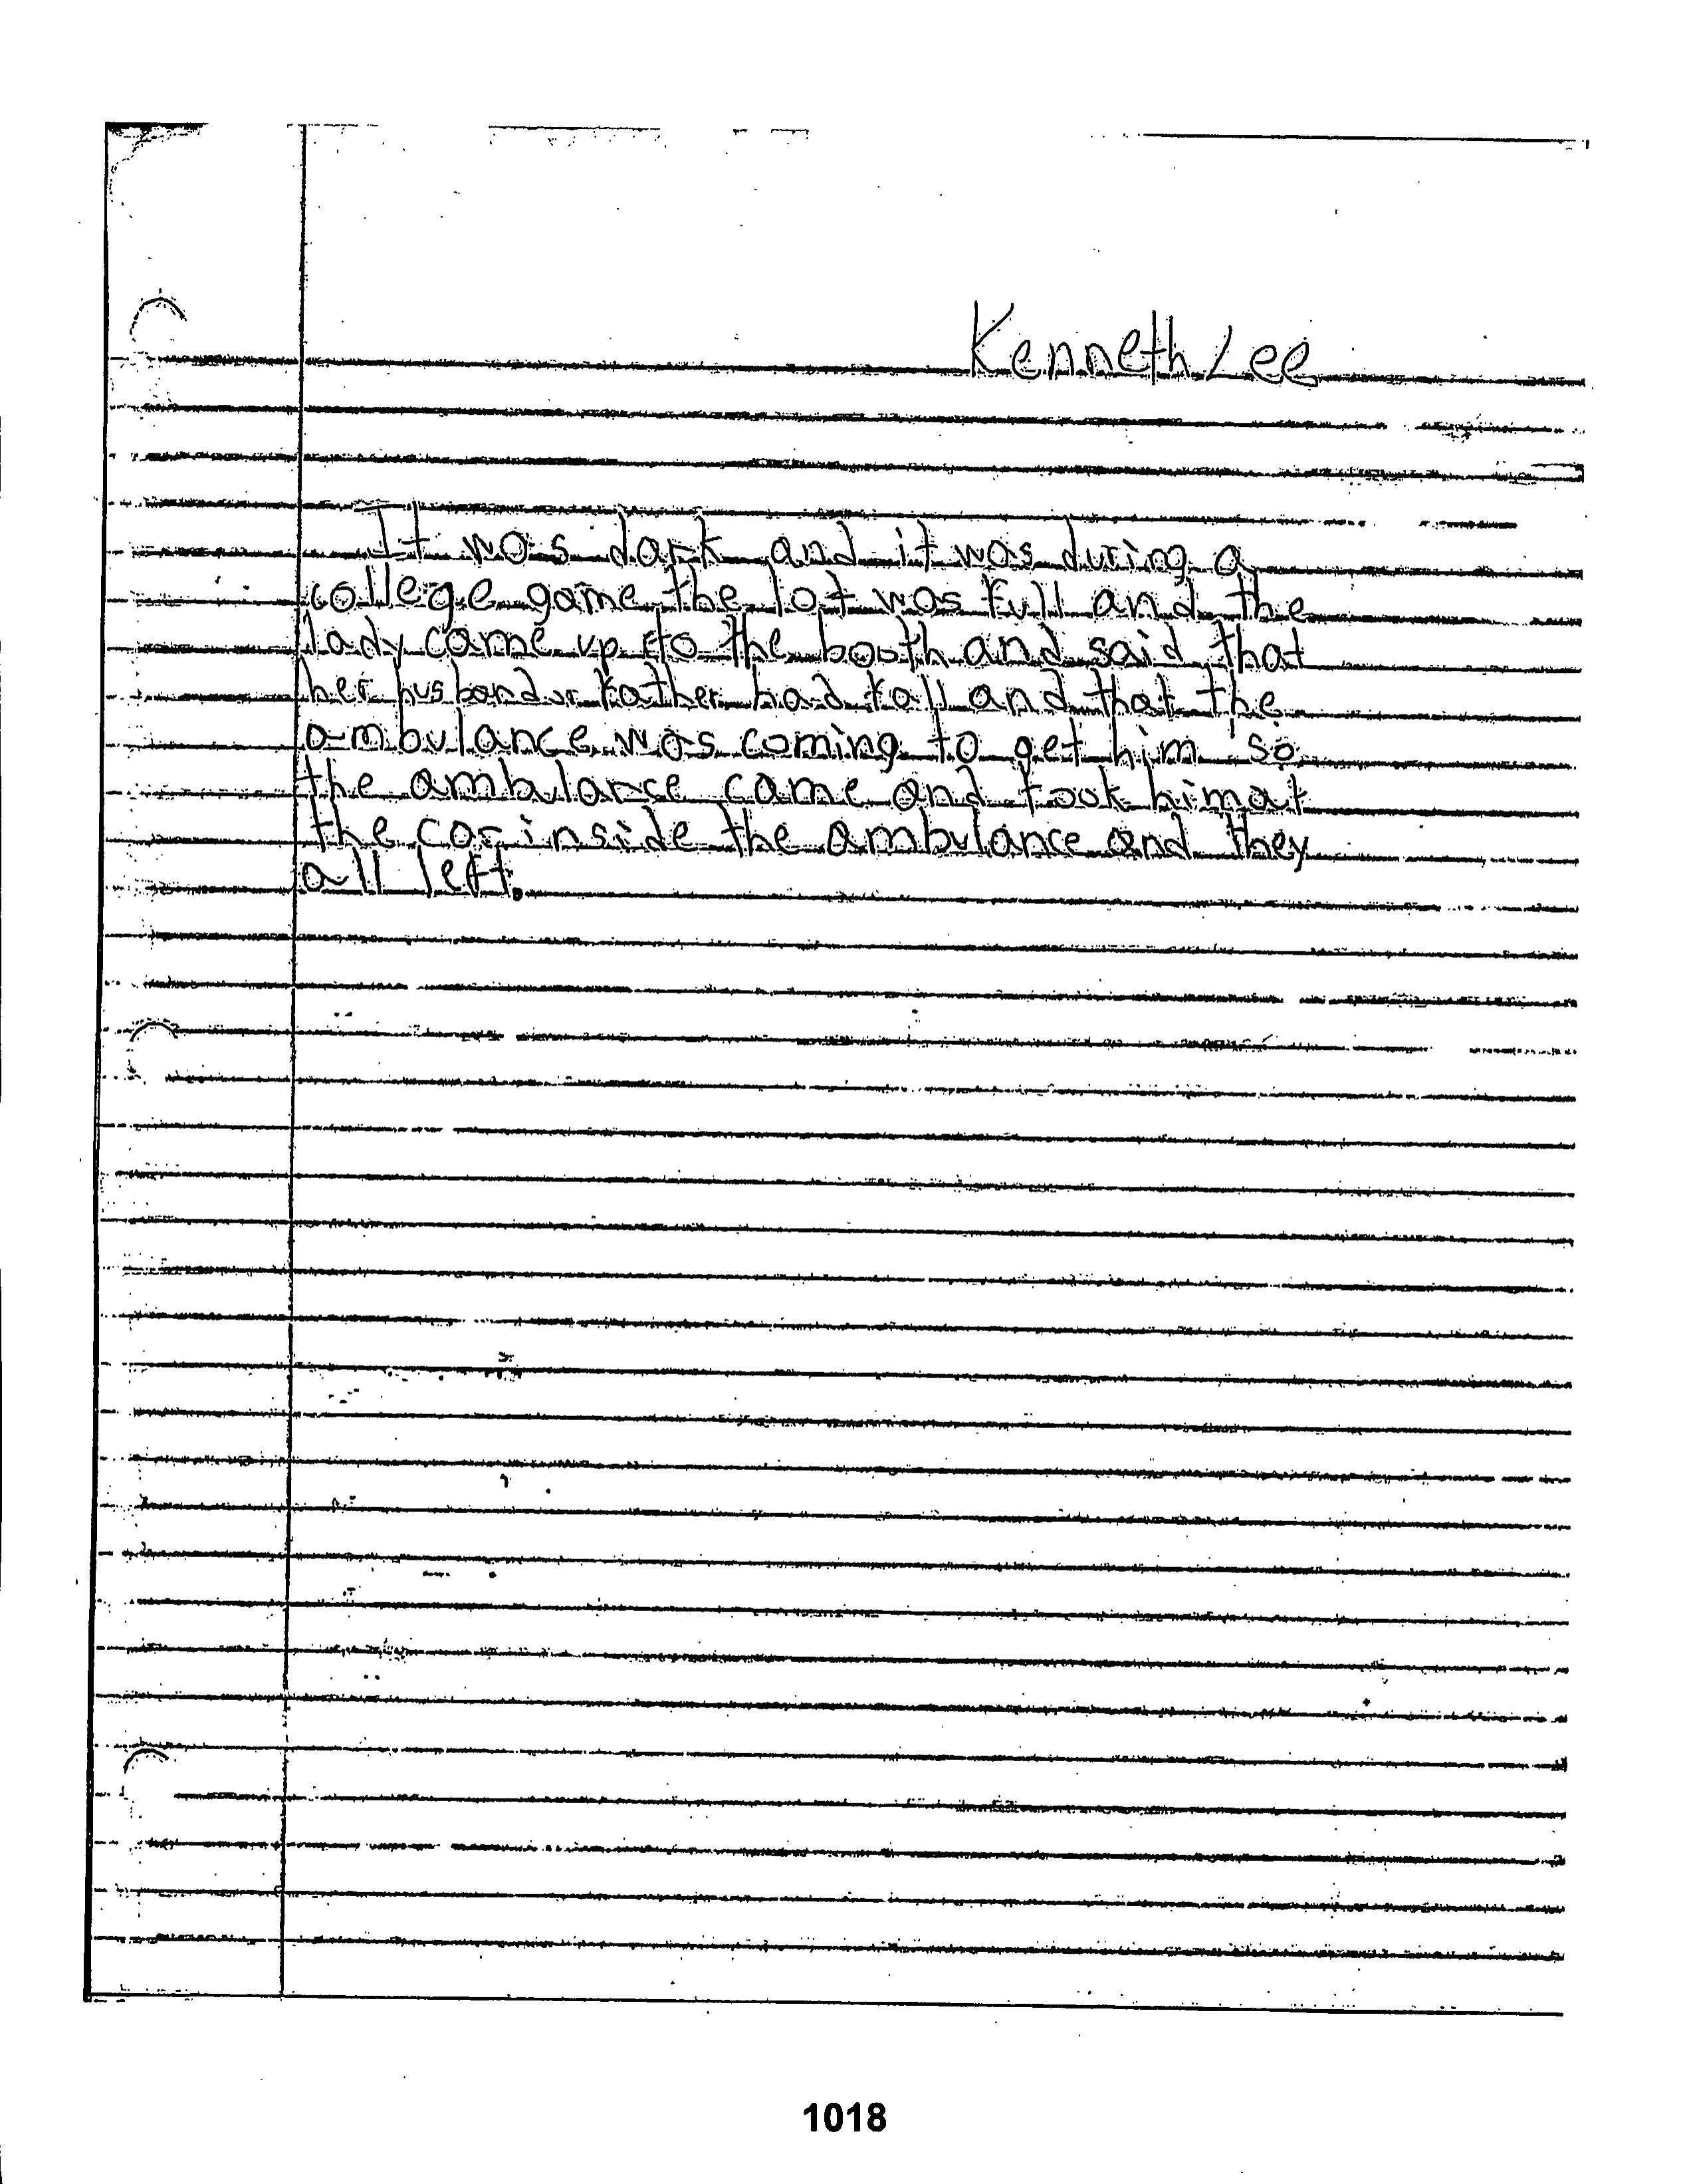 Kenneth Lee
It was dark and it was during a
college game the lot was full and the
lady came up to the booth and said that
her husband or father had fall and that the
ambulance was coming to get him so
the ambulance came and took him at
the car inside the ambulance and they
all left.
1018